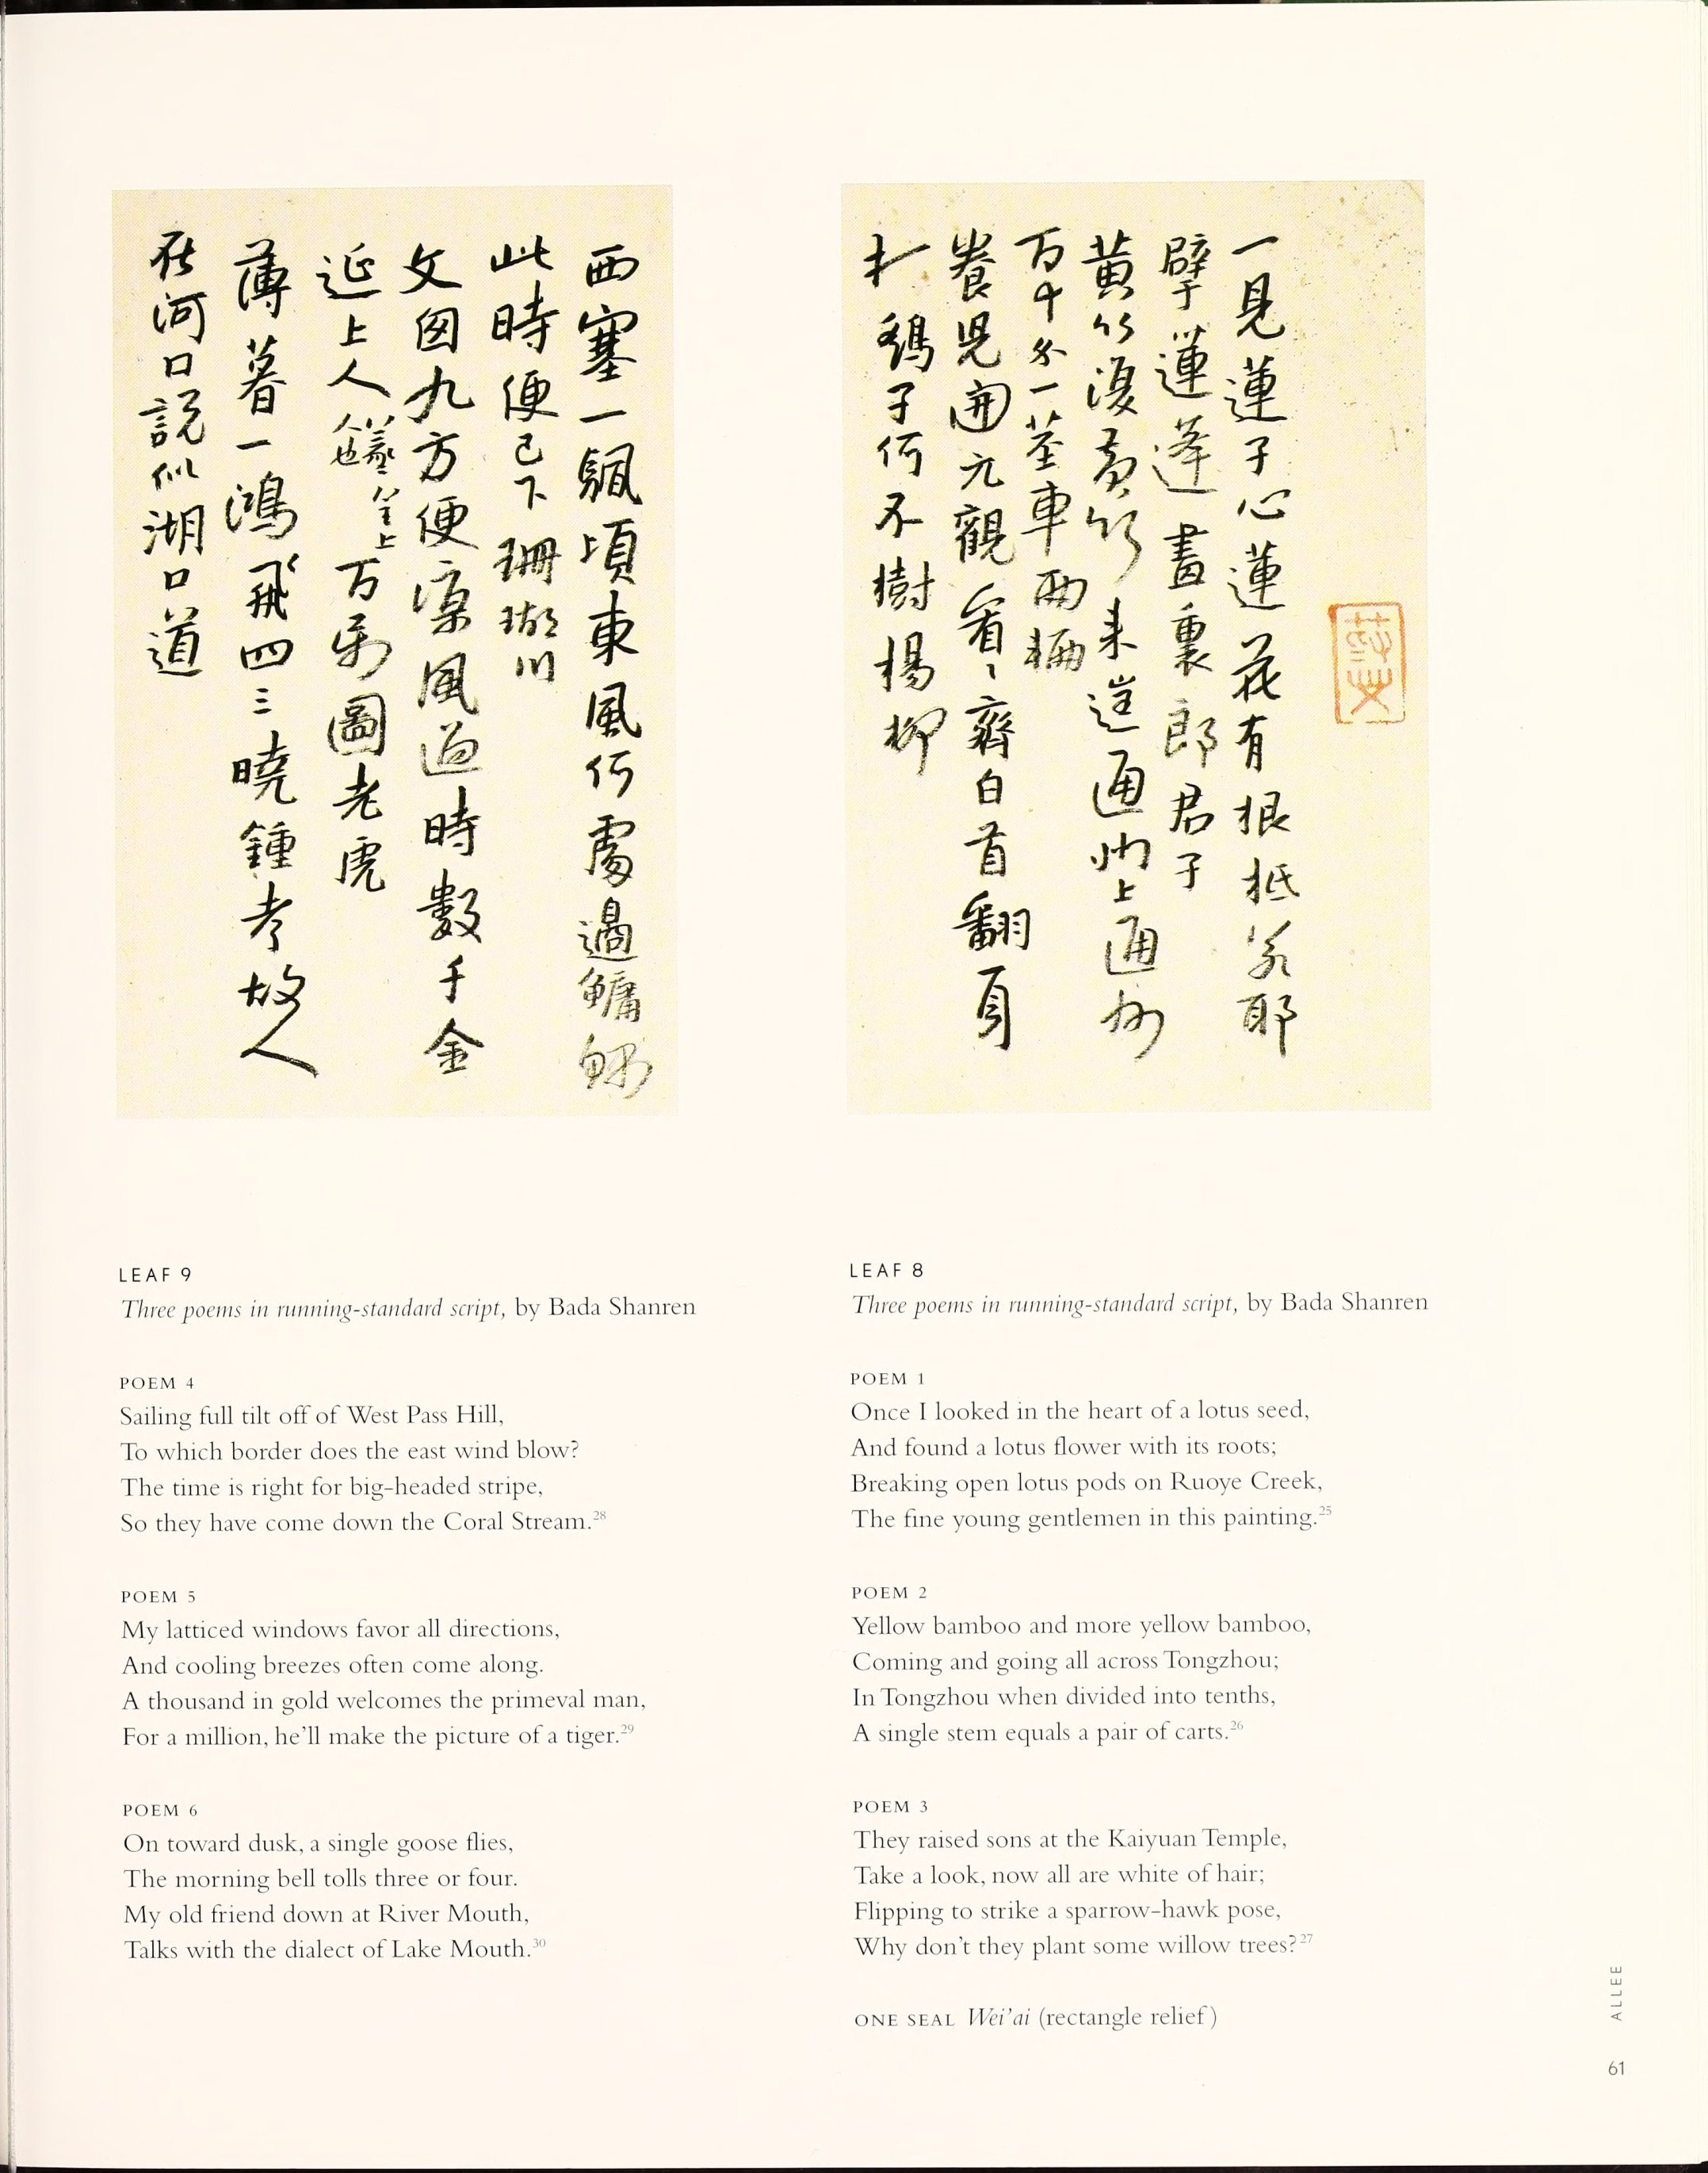 一見蓮子心蓮花有根柢若耶
擘蓮蓬畫裏郎君子
黃竹復黃竹來往通州上通州
百十分一莖車兩輛
養児開元觀看〻齊白首翻身
打鷂子何不樹楊柳
西塞一颿頃東風何處邊鱅
此時便已下珊瑚川
文囪九方便涼風過時數千金
延上人羲皇上人也万圖老虎
薄暮一鴻飛四三曉鍾考故人
在河口説似湖口道
LEAF 9
Three poems in running-standard script, by Bada Shanren
POEM 4
Sailing full tilt off of West Pass Hill,
To which border does the east wind blow?
The time is right for big-headed stripe,
So they have come down the Coral Stream.28
POEM 5
My latticed windows favor all directions,
And cooling breezes often come along.
A thousand in gold welcomes the primeval man,
For a million, he'll make the picture of a tiger.29
POEM 6
On toward dusk, a single goose flies,
The morning bell tolls three or four.
My old friend down at River Mouth,
Talks with the dialect of Lake Mouth.30
LEAF 8
Three poems in running-standard script, by Bada Shanren
POEM 1
Once I looked in the heart of a lotus seed,
And found a lotus flower with its roots;
Breaking open lotus pods on Ruoye Creek,
The fine young gentlemen in this painting.25
POEM 2
Yellow bamboo and more yellow bamboo,
Coming and going all across Tongzhou;
In Tongzhou when divided into tenths,
A single stem equals a pair of carts.26
POEM 3
They raised sons at the Kaiyuan Temple,
Take a look, now all are white of hair;
Flipping to strike a sparrow-hawk pose,
Why don't they plant some willow trees?27
ONE SEAL Wei'ai (rectangle relief)
ALLEE
61